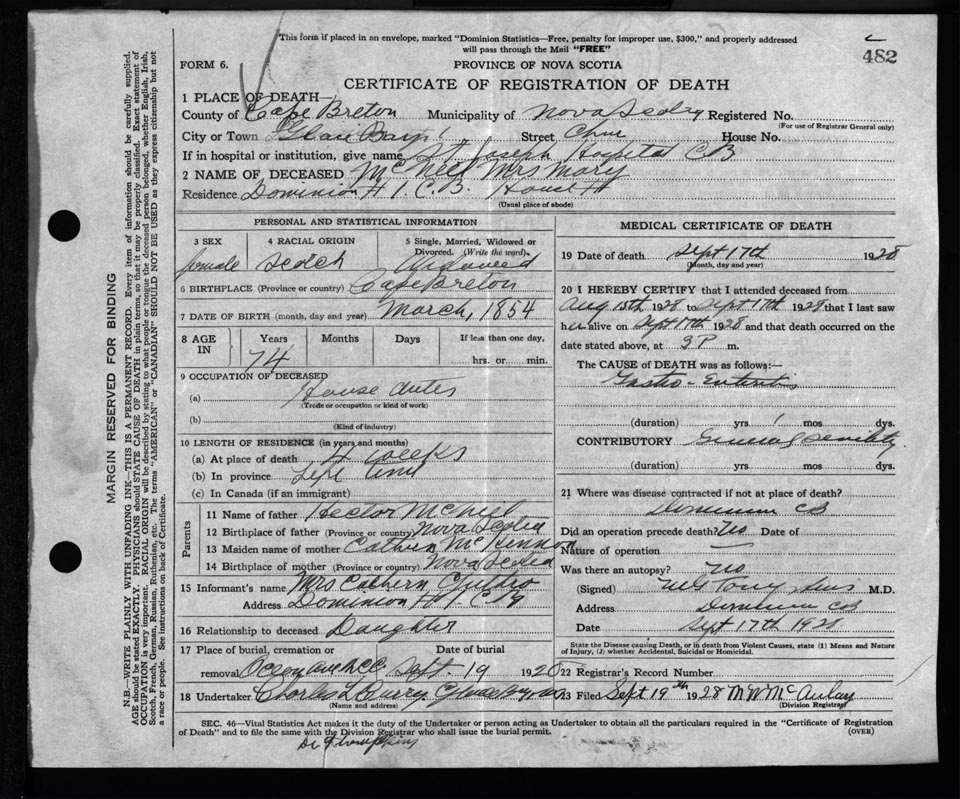 This form if placed in an envelope, marked "Dominion Statistics—Free, penalty for improper use, $300," and properly addressed
will pass through the Mail "FREE"
482
FORM 6.
PROVINCE OF NOVA SCOTIA
CERTIFICATE OF REGISTRATION OF DEATH
1 PLACE OF DEATH—
County of Cape Breton Municipality of Nova Registered No.
(For use of Registrar General only)
City or Town Glace Bay Street House No.
If in hospital or institution, give name St Joseph Hospital C B
2 NAME OF DECEASED McNeil Mrs Mary
Residence Dominion # 1 C.B. House #
(Usual place of abode)
PERSONAL AND STATISTICAL INFORMATION
3 SEX 4 RACIAL ORIGIN 5 Single, Married, Widowed or Divorced. (Write the word).
female Scotch Widowed
6 BIRTHPLACE (Province or country) Cape Breton
7 DATE OF BIRTH (month, day and year) March, 1854
8 AGE IN Years Months Days If less than one day,
74 hrs. or min.
9 OCCUPATION OF DECEASED
(a) House duties
(Trade or occupation or kind of work)
(b)
(Kind of industry)
10 LENGTH OF RESIDENCE (in years and months)
(a) At place of death 4 weeks
(b) In province Life time
(c) In Canada (if an immigrant)
Parents
11 Name of father Hector McNeil
12 Birthplace of father (Province or country) Nova Scotia
13 Maiden name of mother McKinnon
14 Birthplace of mother (Province or country) Nova Scotia
15 Informant's name Mrs Cathern
Address Dominion # 1 C B
16 Relationship to deceased Daughter
17 Place of burial, cremation or removal Date of burial
Sept. 19 1928
18 Undertaker Charles Curry Glace Bay
(Name and address)
MEDICAL CERTIFICATE OF DEATH
19 Date of death Sept 17th 1928
(Month, day and year)
20 I HEREBY CERTIFY that I attended deceased from
Aug 15th 1928 to Sept 17th 1928 that I last saw
her alive on Sept 17th 1928 and that death occurred on the
date stated above, at 9 P m.
The CAUSE OF DEATH was as follows:—
Gastro-Enteritis
(duration) yrs 1 mos dys.
CONTRIBUTORY General senility
(duration) yrs mos dys.
21 Where was disease contracted if not at place of death?
Dominion CB
Did an operation precede death? No Date of
Nature of operation —
Was there an autopsy? No
(Signed) M.D.
Address Dominion CB
Date Sept 17th 1928.
State the Disease causing Death, or in death from Violent Causes, state (1) Means and Nature
of Injury, (2) whether Accidental, Suicidal or Homicidal.
22 Registrar's Record Number
23 Filed Sept 19th 1928 M W McAulay
(Division Registrar)
SEC. 46—Vital Statistics Act makes it the duty of the Undertaker or person acting as Undertaker to obtain all the particulars required in the "Certificate of Registration
of Death" and to file the same with the Division Registrar who shall issue the burial permit.
(OVER)
MARGIN RESERVED FOR BINDING
N.B.—WRITE PLAINLY WITH UNFADING INK—THIS IS A PERMANENT RECORD. Every item of information should be carefully supplied.
AGE should be stated EXACTLY. PHYSICIANS should STATE CAUSE OF DEATH in plain terms, so that it may be properly classified. Exact statement of
OCCUPATION is very important. RACIAL ORIGIN will be described by stating to what people or tongue the deceased person belonged, whether English, Irish,
Scotch, French, German, Russian, Ruthenian, etc. The terms "AMERICAN" or "CANADIAN" SHOULD NOT BE USED as they express citizenship but not
a race or people. See instructions on back of Certificate.